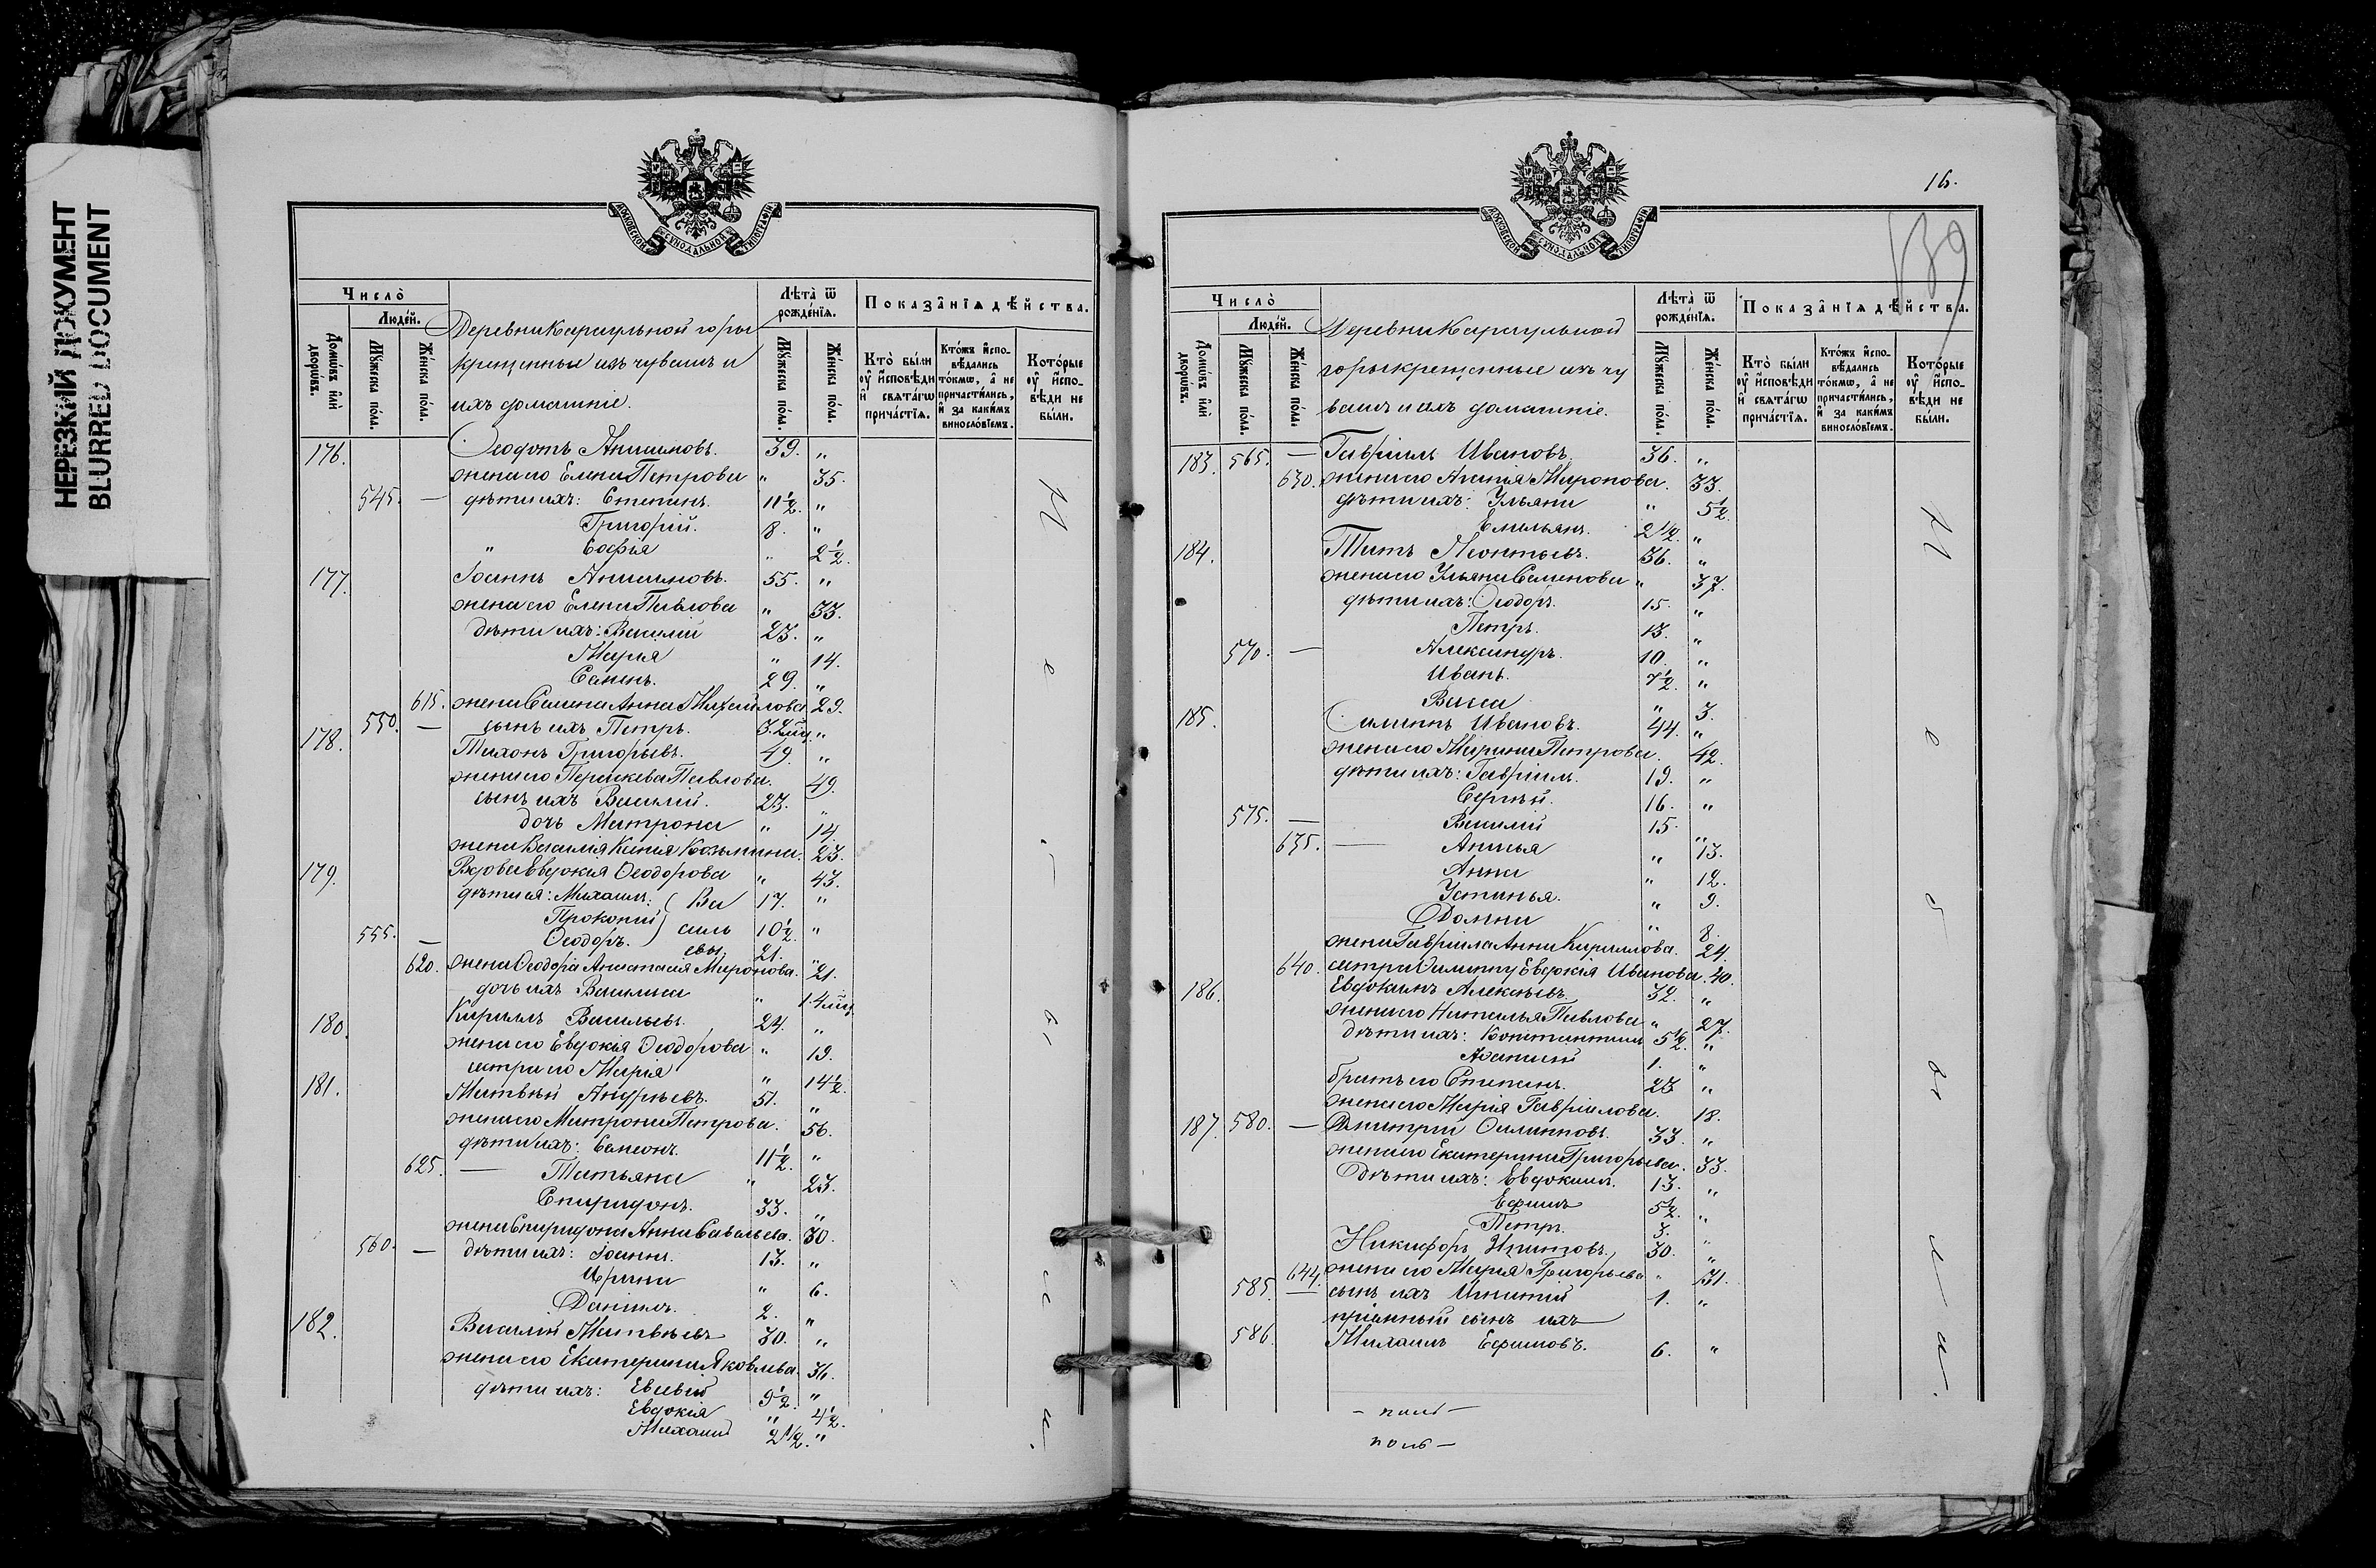 НЕРЕЗКИЙ ДОКУМЕНТ
BLURRED DOCUMENT
МОСКОВСКОЙ СУНОДАЛЬНОЙ ТИПОГРАФІИ
Число̀
Людéй.
Домѡ́въ и҆лѝ дворѡ́въ.
Мꙋ́жеска по́ла.
Же́нска по́ла.
Деревни Караульной горы
крещенные изъ чувашъ и
ихъ домашніе.
Лѣ́та ѿ рожде́нїѧ.
Мꙋ́жеска по́ла.
Же́нска по́ла.
Показа̑нїѧ дѣ́йства.
Кто̀ бы́ли ᲂу҆ и҆́сповѣди и҆ свѧта́гѡ прича́стїѧ.
Кто́жъ и҆спо-вѣ́дались то́кмѡ, а҆ не причасти́лись, и҆ за каки́мъ виносло́вїемъ.
Кото́рые ᲂу҆ и҆́спо-вѣди не бы́ли.
176. Ѳеодотъ Анисимовъ. 39. „
жена его Елена Петрова „ 35.
545. — дѣти ихъ: Степанъ. 11½. „
Григорій. 8. „
„ Софія „ 2½.
177. Іоаннъ Анисимовъ. 55. „
жена его Елена Павлова „ 53.
дѣти ихъ: Василій 23. „
Марія „ 14.
Семенъ. 29. „
615. жена Семена Анна Михайлова 29.
550. — сынъ ихъ Петръ. 3. 2 мц. „
178. Тихонъ Григорьевъ. 49. „
жена его Параскева Павлова. 49.
сынъ ихъ Василій. 23. „
дочь Матрона „ 14.
жена Василія Ксенія Козьмина. 23.
179. Вдова Евдокія Ѳеодорова „ 43.
дѣти ея: Михаилъ. ( Ва 17. „
Прокопій ) силь 10½. „
555. — Ѳеодоръ. евы. 21. „
620. жена Ѳеодора Анастасія Миронова. 21.
дочь ихъ Василиса „ 1. 4 мц.
180. Кириллъ Васильевъ. 24. „
жена его Евдокія Ѳеодорова „ 19.
сестра его Марія „ 14½.
181. Матвѣй Андреевъ. 51. „
жена его Матрона Петрова. 56.
дѣти ихъ: Самсонъ. 11½. „
625. — Татьяна „ 23.
Спиридонъ. 33. „
жена Спиридона Анна Савельева. 30.
560. — дѣти ихъ: Іоаннъ. 13. „
Ирина „ 6.
Даніилъ. 2. „
182. Василій Матвѣевъ 30. „
жена его Екатерина Яковлева 36.
дѣти ихъ: Евсевій 9½. „
Евдокія „ 4½.
Михаилъ 2½. „
16.
139
МОСКОВСКОЙ СУНОДАЛЬНОЙ ТИПОГРАФІИ
Число̀
Людéй.
Домѡ́въ и҆лѝ дворѡ́въ.
Мꙋ́жеска по́ла.
Же́нска по́ла.
Деревни Караульной
горы крещенные изъ чу
вашъ и ихъ домашніе.
Лѣ́та ѿ рожде́нїѧ.
Мꙋ́жеска по́ла.
Же́нска по́ла.
Показа̑нїѧ дѣ́йства.
Кто̀ бы́ли ᲂу҆ и҆́сповѣди и҆ свѧта́гѡ прича́стїѧ.
Кто́жъ и҆спо-вѣ́дались то́кмѡ, а҆ не причасти́лись, и҆ за каки́мъ виносло́вїемъ.
Кото́рые ᲂу҆ и҆́спо-вѣди не бы́ли.
183. 565. — Гавріилъ Ивановъ. 36. „
630. жена его Агапія Миронова. 33.
дѣти ихъ: Ульяна „ 5½.
Емельянъ. 2½. „
184. Титъ Леонтьевъ. 36. „
жена его Ульяна Семенова „ 37.
дѣти ихъ: Ѳеодоръ. 15. „
Петръ. 13. „
570. — Александръ. 10. „
Иванъ. 7½. „
Васса „ 3.
185. Филиппъ Ивановъ. 44. „
жена его Марина Петрова. 42.
дѣти ихъ: Гавріилъ. 19. „
Сергѣй. 16. „
575. — Василій 15. „
635. — Анисья „ 13.
Анна „ 12.
Устинья. „ 9.
Домна „ 8.
жена Гавріила Анна Кириллова. 24.
640. сестра Филиппу Евдокія Иванова. 40.
186. Евдокимъ Алексѣевъ. 32. „
жена его Наталья Павлова „ 27.
дѣти ихъ: Константинъ 5½. „
Аѳанасій 1. „
братъ его Степанъ. 23 „
жена его Марія Гавріилова. 18.
187. 580. — Дмитрій Филипповъ. 33. „
жена его Екатерина Григорьева. 33.
дѣти ихъ: Евдокимъ. 13. „
Ефимъ 5½. „
Петръ. 3. „
Никифоръ Титовъ. 30. „
644. жена его Марія Григорьева „ 31.
585. — сынъ ихъ Игнатій 1. „
пріемный сынъ ихъ
586. Михаилъ Ефимовъ. 6. „